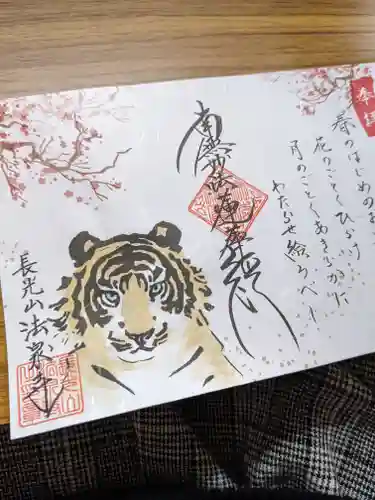 奉拝
春のはじめの
花のごとくひらけ
月のごとくあきらかに
わたらせ給うべし
南無妙法蓮華経
長光山法泉寺